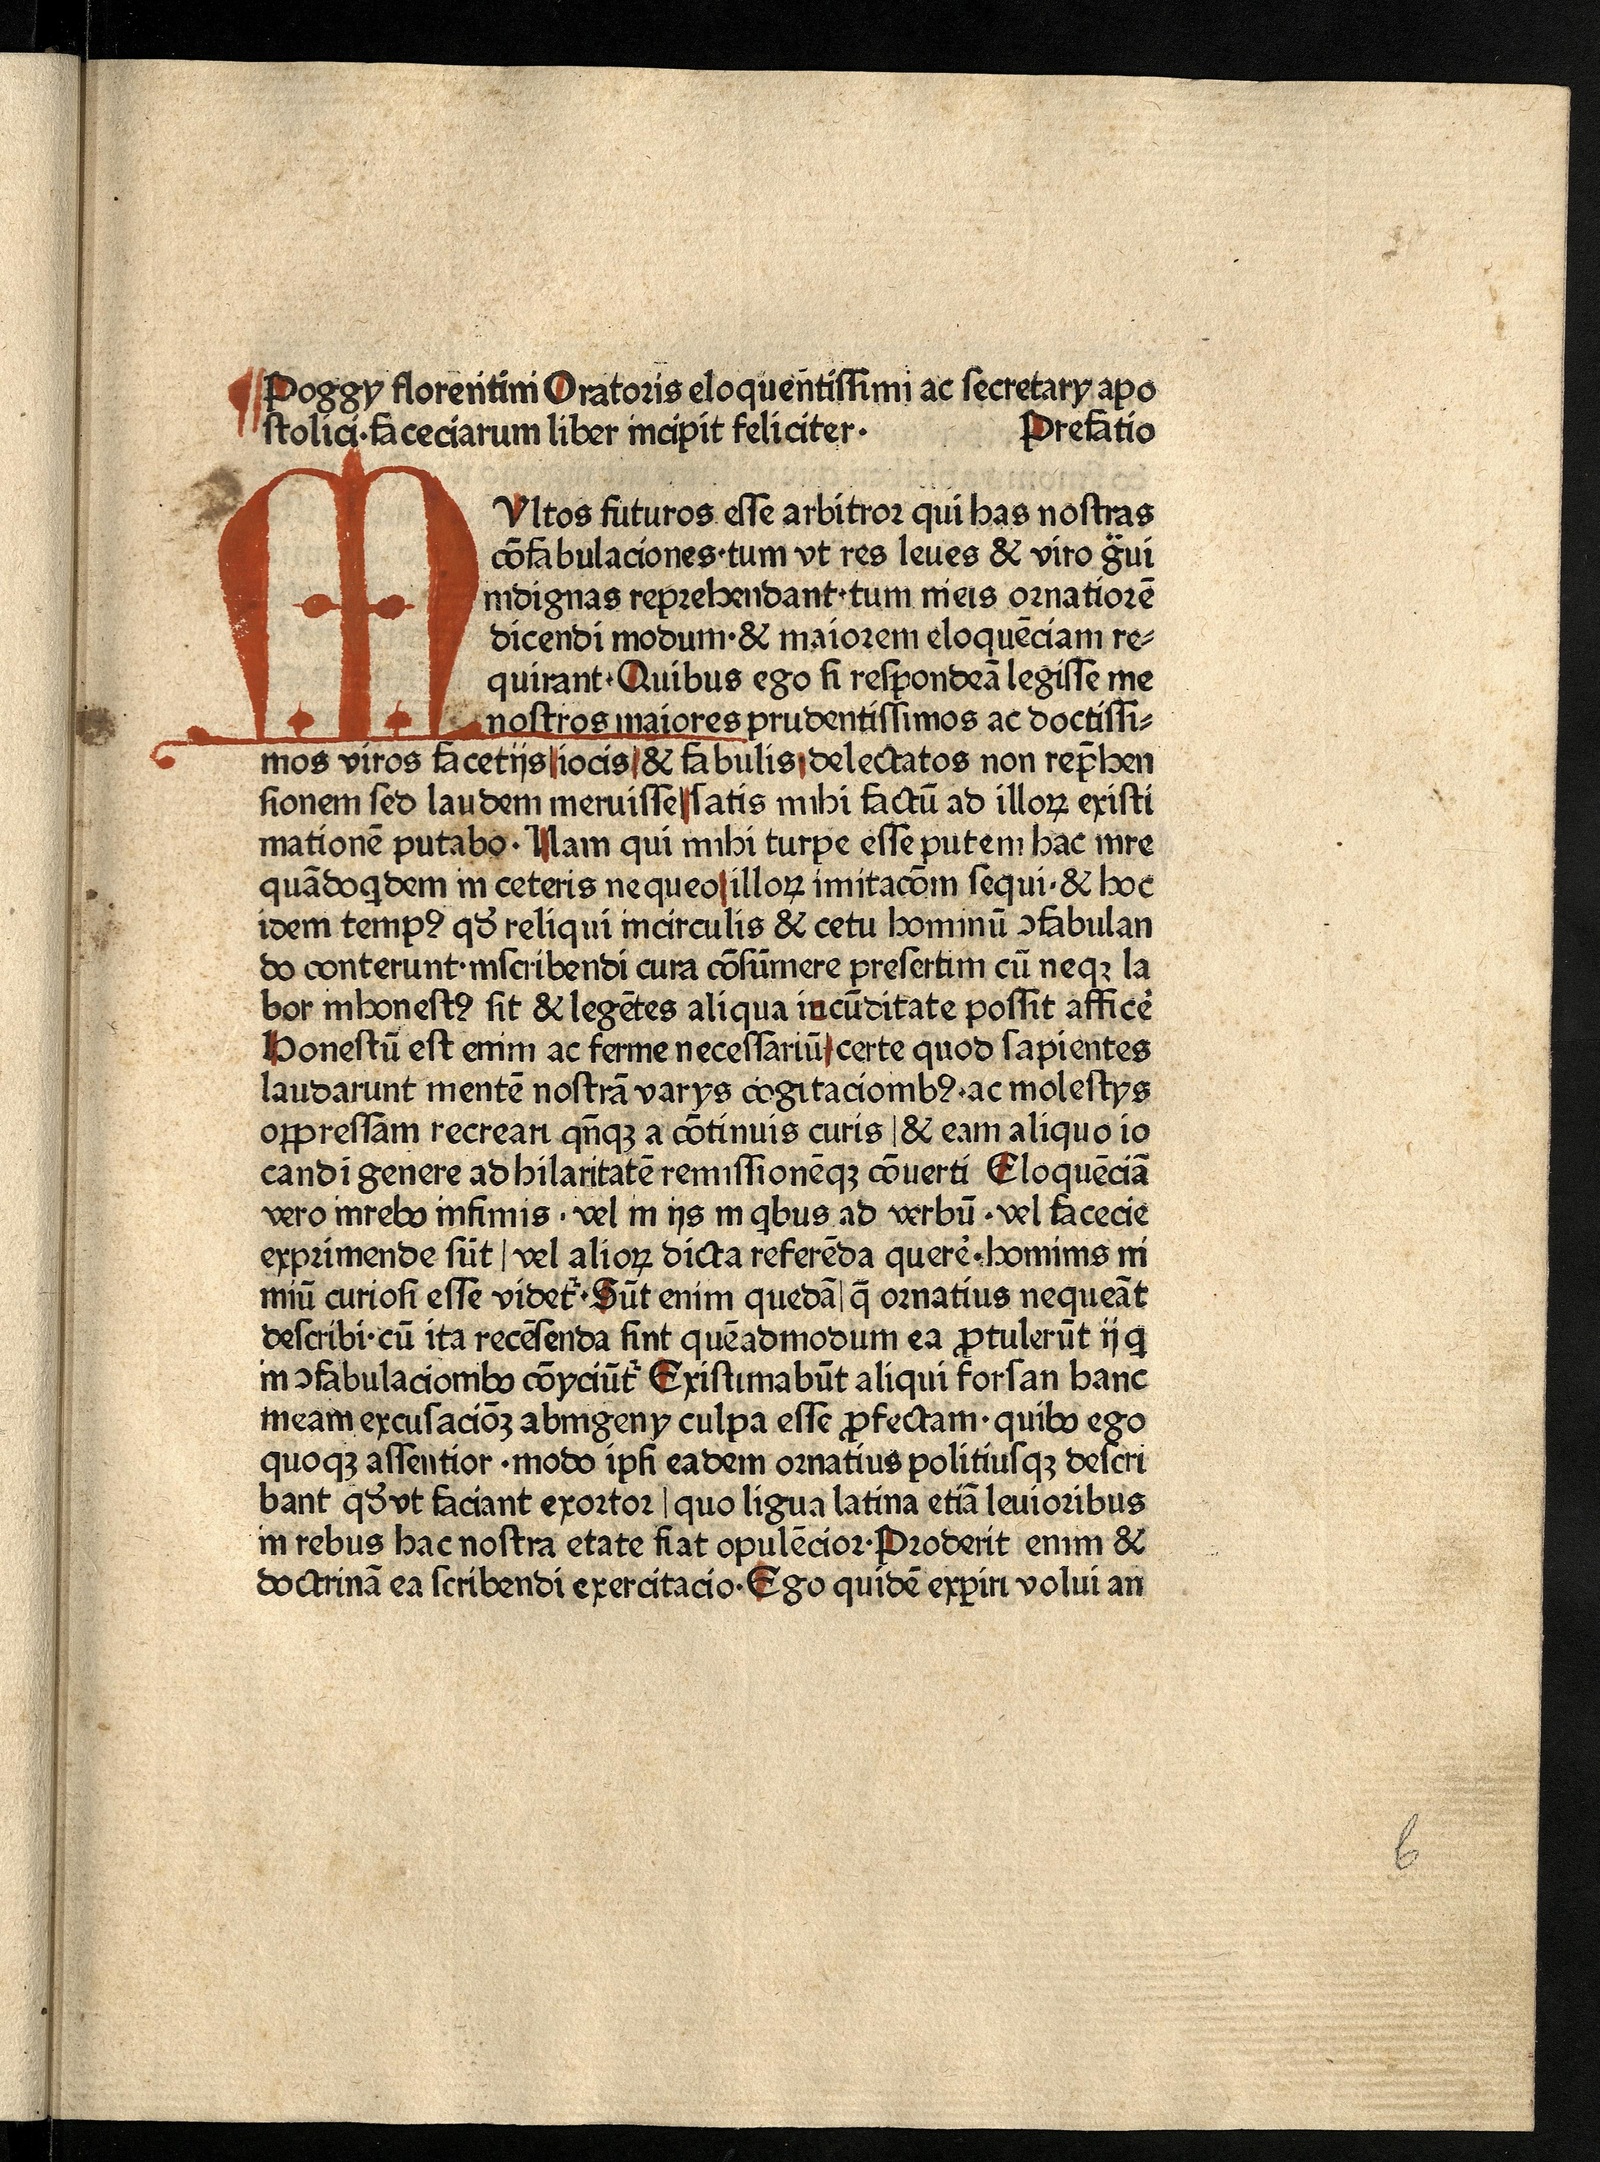 Poggy florentini Oratoris eloquentissimi ac secretary apo
stolici·faceciarum liber incipit feliciter· Prefatio
MVltos futuros esse arbitror qui has nostras
cōfabulaciones·tum vt res leues & viro g̈ui
indignas reprehendant·tum in eis ornatiorē
dicendi modum·& maiorem eloquēciam re⸗
quirant·Quibus ego si respondeā legisse me
nostros maiores prudentissimos ac doctissi⸗
mos viros facetijs|iocis|& fabulis|delectatos non rep̄hen
sionem sed laudem meruisse|satis mihi factū ad illoꝝ existi
mationē putabo·Nam qui mihi turpe esse putem hac inre
quādoqdem in ceteris nequeo|illoꝝ imitacōm sequi·& hoc
idem tempꝰ qđ reliqui incirculis & cetu hominū ↄfabulan
do conterunt·inscribendi cura cōsūmere presertim cū neqꝫ la
bor inhonestꝰ sit & legētes aliqua iucūditate possit afficē
Honestū est enim ac ferme necessariū|certe quod sapientes
laudarunt mentē nostrā varys cogitacionibꝰ·ac molestys
oppressam recreari qn̄qꝫ a cōtinuis curis|& eam aliquo io
candi genere ad hilaritatē remissionēqꝫ cōuerti Eloquēciā
vero inrebꝫ infimis·vel in ijs in qbus ad verbū·vel facecie
exprimende sūt|vel alioꝝ dicta referēda querē·hominis ni
miū curiosi esse videt᷑·Sūt enim quedā|q̄ ornatius nequeāt
describi·cū ita recēsenda sint quēadmodum ea ꝓtulerūt ij q
in ↄfabulacionibꝫ cōyciūt᷑ Existimabūt aliqui forsan hanc
meam excusaciōꝫ abingeny culpa esse ꝓfectam·quibꝫ ego
quoqꝫ assentior·modo ipsi eadem ornatius politiusqꝫ descri
bant qđ vt faciant exortor|quo ligua latina etiā leuioribus
in rebus hac nostra etate fiat opulēcior·Proderit enim &
doctrinā ea scribendi exercitacio·Ego quidē exꝑiri volui an
6